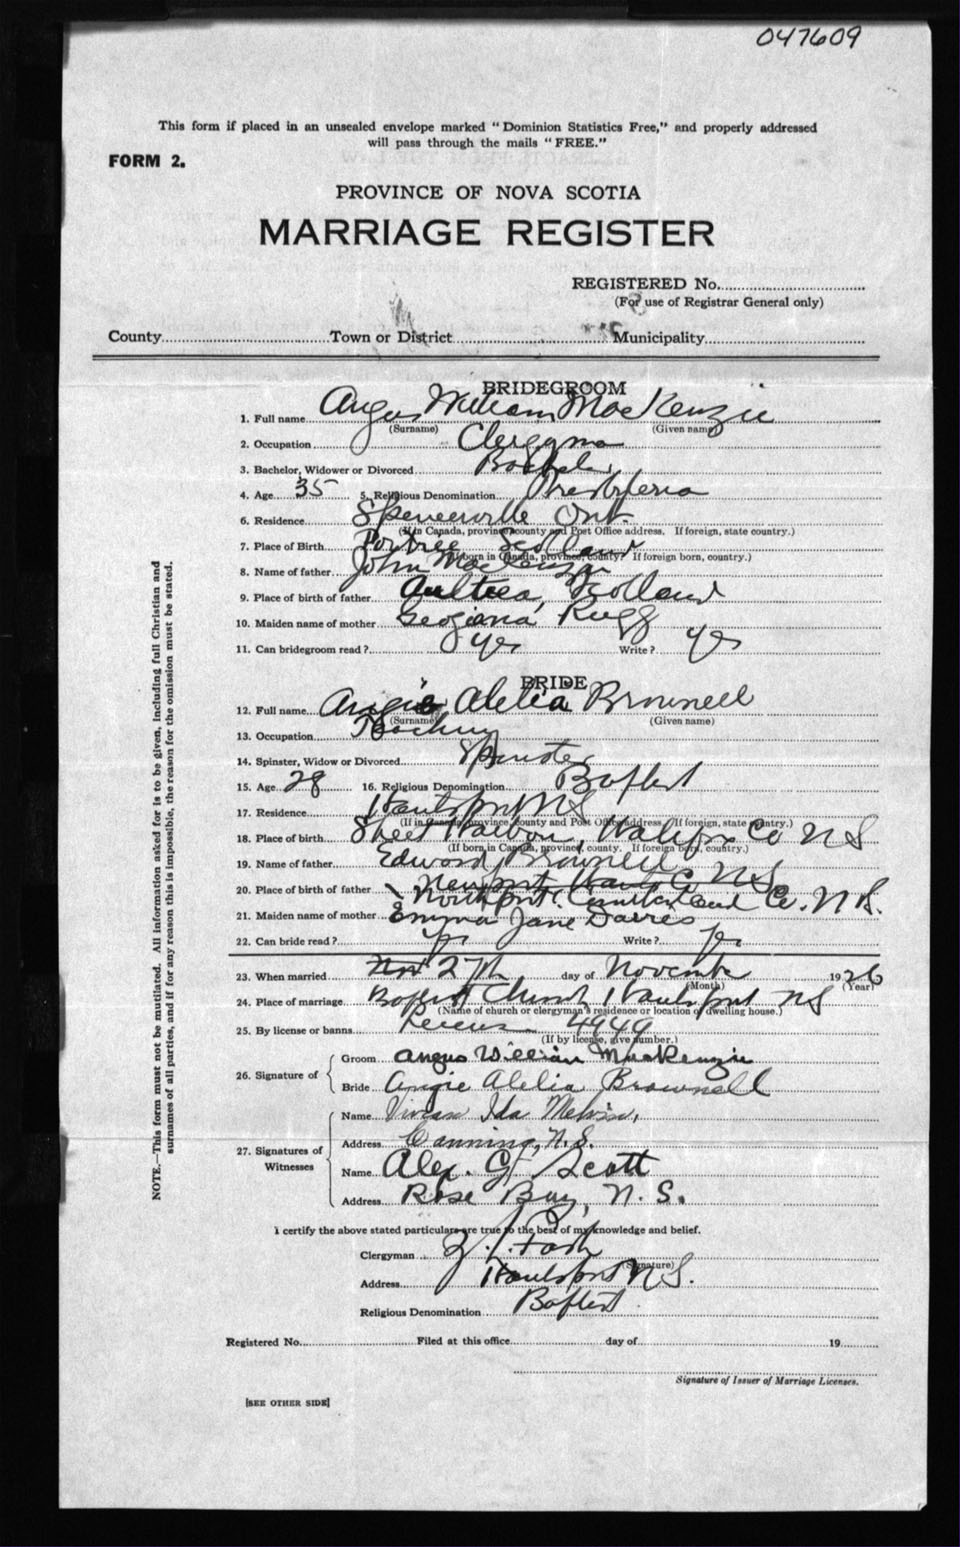 047609
This form if placed in an unsealed envelope marked "Dominion Statistics Free," and properly addressed
will pass through the mails "FREE."
FORM 2.
PROVINCE OF NOVA SCOTIA
MARRIAGE REGISTER
REGISTERED No.
(For use of Registrar General only)
County Town or District Municipality
BRIDEGROOM
1. Full name Angus William MacKenzie
(Surname) (Given name)
2. Occupation Clergyma
3. Bachelor, Widower or Divorced Bachelr
4. Age 35 5. Religious Denomination Presbyteria
6. Residence Spencerville Ont.
(If in Canada, province, county and Post Office address. If foreign, state country.)
7. Place of Birth Portree Scotland
(If born in Canada, province, county. If foreign born, country.)
8. Name of father John MacKenzie
9. Place of birth of father Aultbea, Scotland
10. Maiden name of mother Georgiana Rugg
11. Can bridegroom read? yes Write? yes
BRIDE
12. Full name Angie Alelia Brownell
(Surname) (Given name)
13. Occupation Teaching
14. Spinster, Widow or Divorced Spinster
15. Age 28 16. Religious Denomination Baptist
17. Residence Hantsport NS
(If in Canada, province, county and Post Office address. If foreign, state country.)
18. Place of birth Sheet Harbour, Halifax Co NS
(If born in Canada, province, county. If foreign born, country.)
19. Name of father Edward Brownell
20. Place of birth of father Newport Hants Co NS
Northport Cumberland Co. N.S.
21. Maiden name of mother Emma Jane Davies
22. Can bride read? yes Write? yes
23. When married Nov 27th day of November 1926
(Month) (Year)
24. Place of marriage Baptist Church Hantsport NS
(Name of church or clergyman's residence or location of dwelling house.)
25. By license or banns License 4949
(If by license, give number.)
26. Signature of
Groom Angus William MacKenzie
Bride Angie Alelia Brownell
27. Signatures of Witnesses
Name Vivian Ida Melvin,
Address Canning, N.S.
Name Alex. G. Scott
Address Rose Bay, N. S.
I certify the above stated particulars are true to the best of my knowledge and belief.
Clergyman Z. L. Fash
(Signature)
Address Hantsport N.S.
Religious Denomination Baptist
Registered No. Filed at this office day of 19
Signature of Issuer of Marriage Licenses.
[SEE OTHER SIDE]
NOTE.—This form must not be mutilated. All information asked for is to be given, including full Christian and
surnames of all parties, and if for any reason this is impossible, the reason for the omission must be stated.